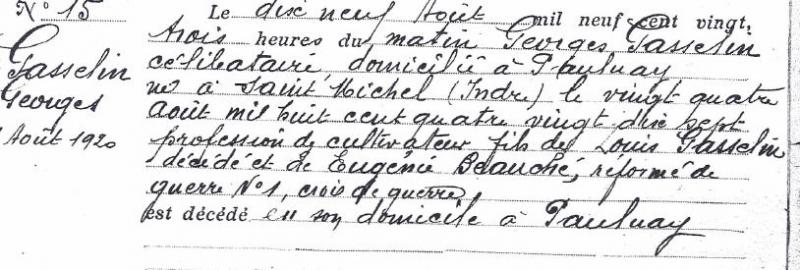 N° 15
Gasselin
Georges
Août 1920
Le dix neuf Août mil neuf cent vingt,
trois heures du matin Georges Gasselin
célibataire domicilié à Paulnay
né à Saint Michel (Indre) le vingt quatre
août mil huit cent quatre vingt dix sept
profession de cultivateur fils de Louis Gasselin
décédé et de Eugénie Beauché, réformé de
guerre N°1, croix de guerre,
est décédé en son domicile à Paulnay